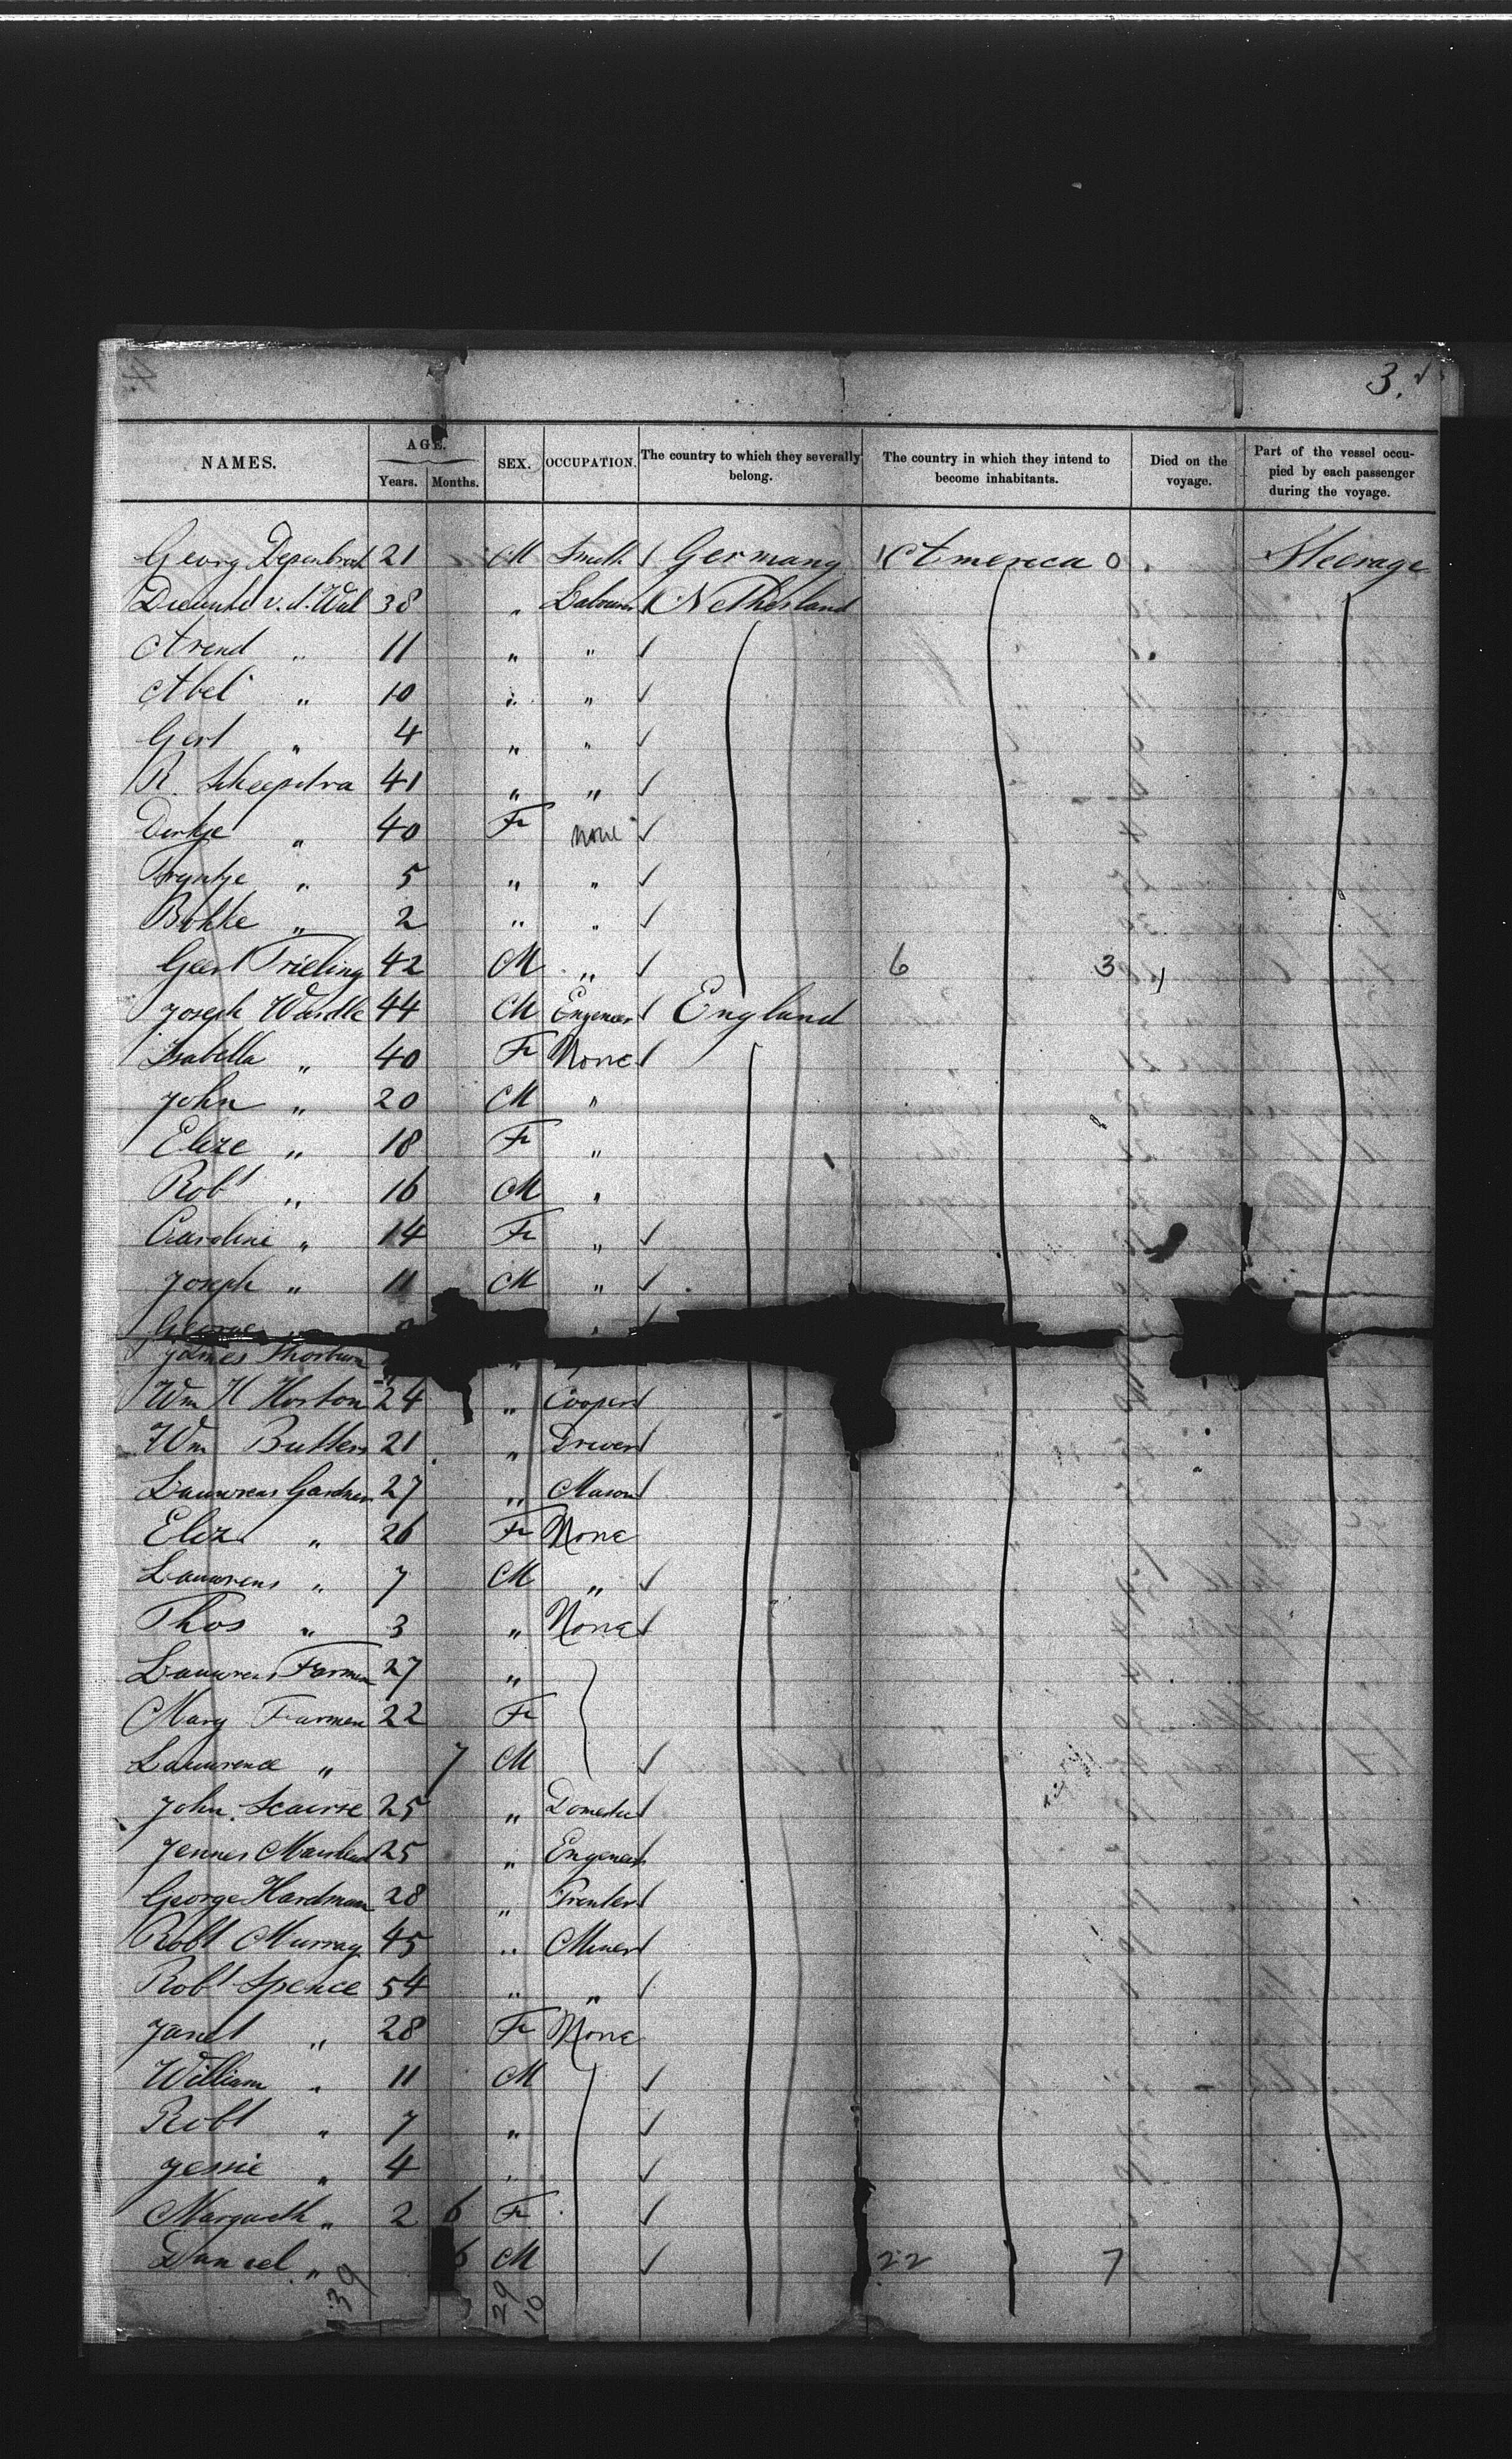 3.
NAMES. AGE. Years. Months. SEX. OCCUPATION. The country to which they severally belong. The country in which they intend to become inhabitants. Died on the voyage. Part of the vessel occupied by each passenger during the voyage.
Georg 21 M Smith Germany 1 America 0 Steerage
v. d. Wal 38 " Netherland
Arend " 11 " "
Abel " 10 " "
Gert " 4 " "
R. 41 " "
Dirkje " 40 Fe none
Tryntje " 5 " "
Bokke " 2 " "
Geert Frieling 42 M " 6 3
Joseph Wardle 44 M Engeneer England
Isabella " 40 Fe None
John " 20 M "
Elize " 18 Fe "
Robt " 16 M "
Caroline " 14 Fe "
Joseph " 11 M "
George "
James Thorburn "
Wm H Horton 24 " Cooper
Wm Butters 21 "
Lauwrens Gardner 27 " Mason
Eliz " 26 Fe None
Lauwrens " 7 M "
Thos " 3 " None
Lauwrens Farmen 27 "
Mary Farmen 22 Fe
Lauwrence " 7 M
John Scairse 25 " Domestic
25 " Engeneer
George Hardman 28 " Prenter
Robt Murray 45 " Miner
Robt Spence 54 " "
Janet " 28 Fe None
William " 11 M
Robt " 7 "
Jessie " 4 "
Margareth " 2 6 Fe
Daniel " 6 M 22 7
39 29 10